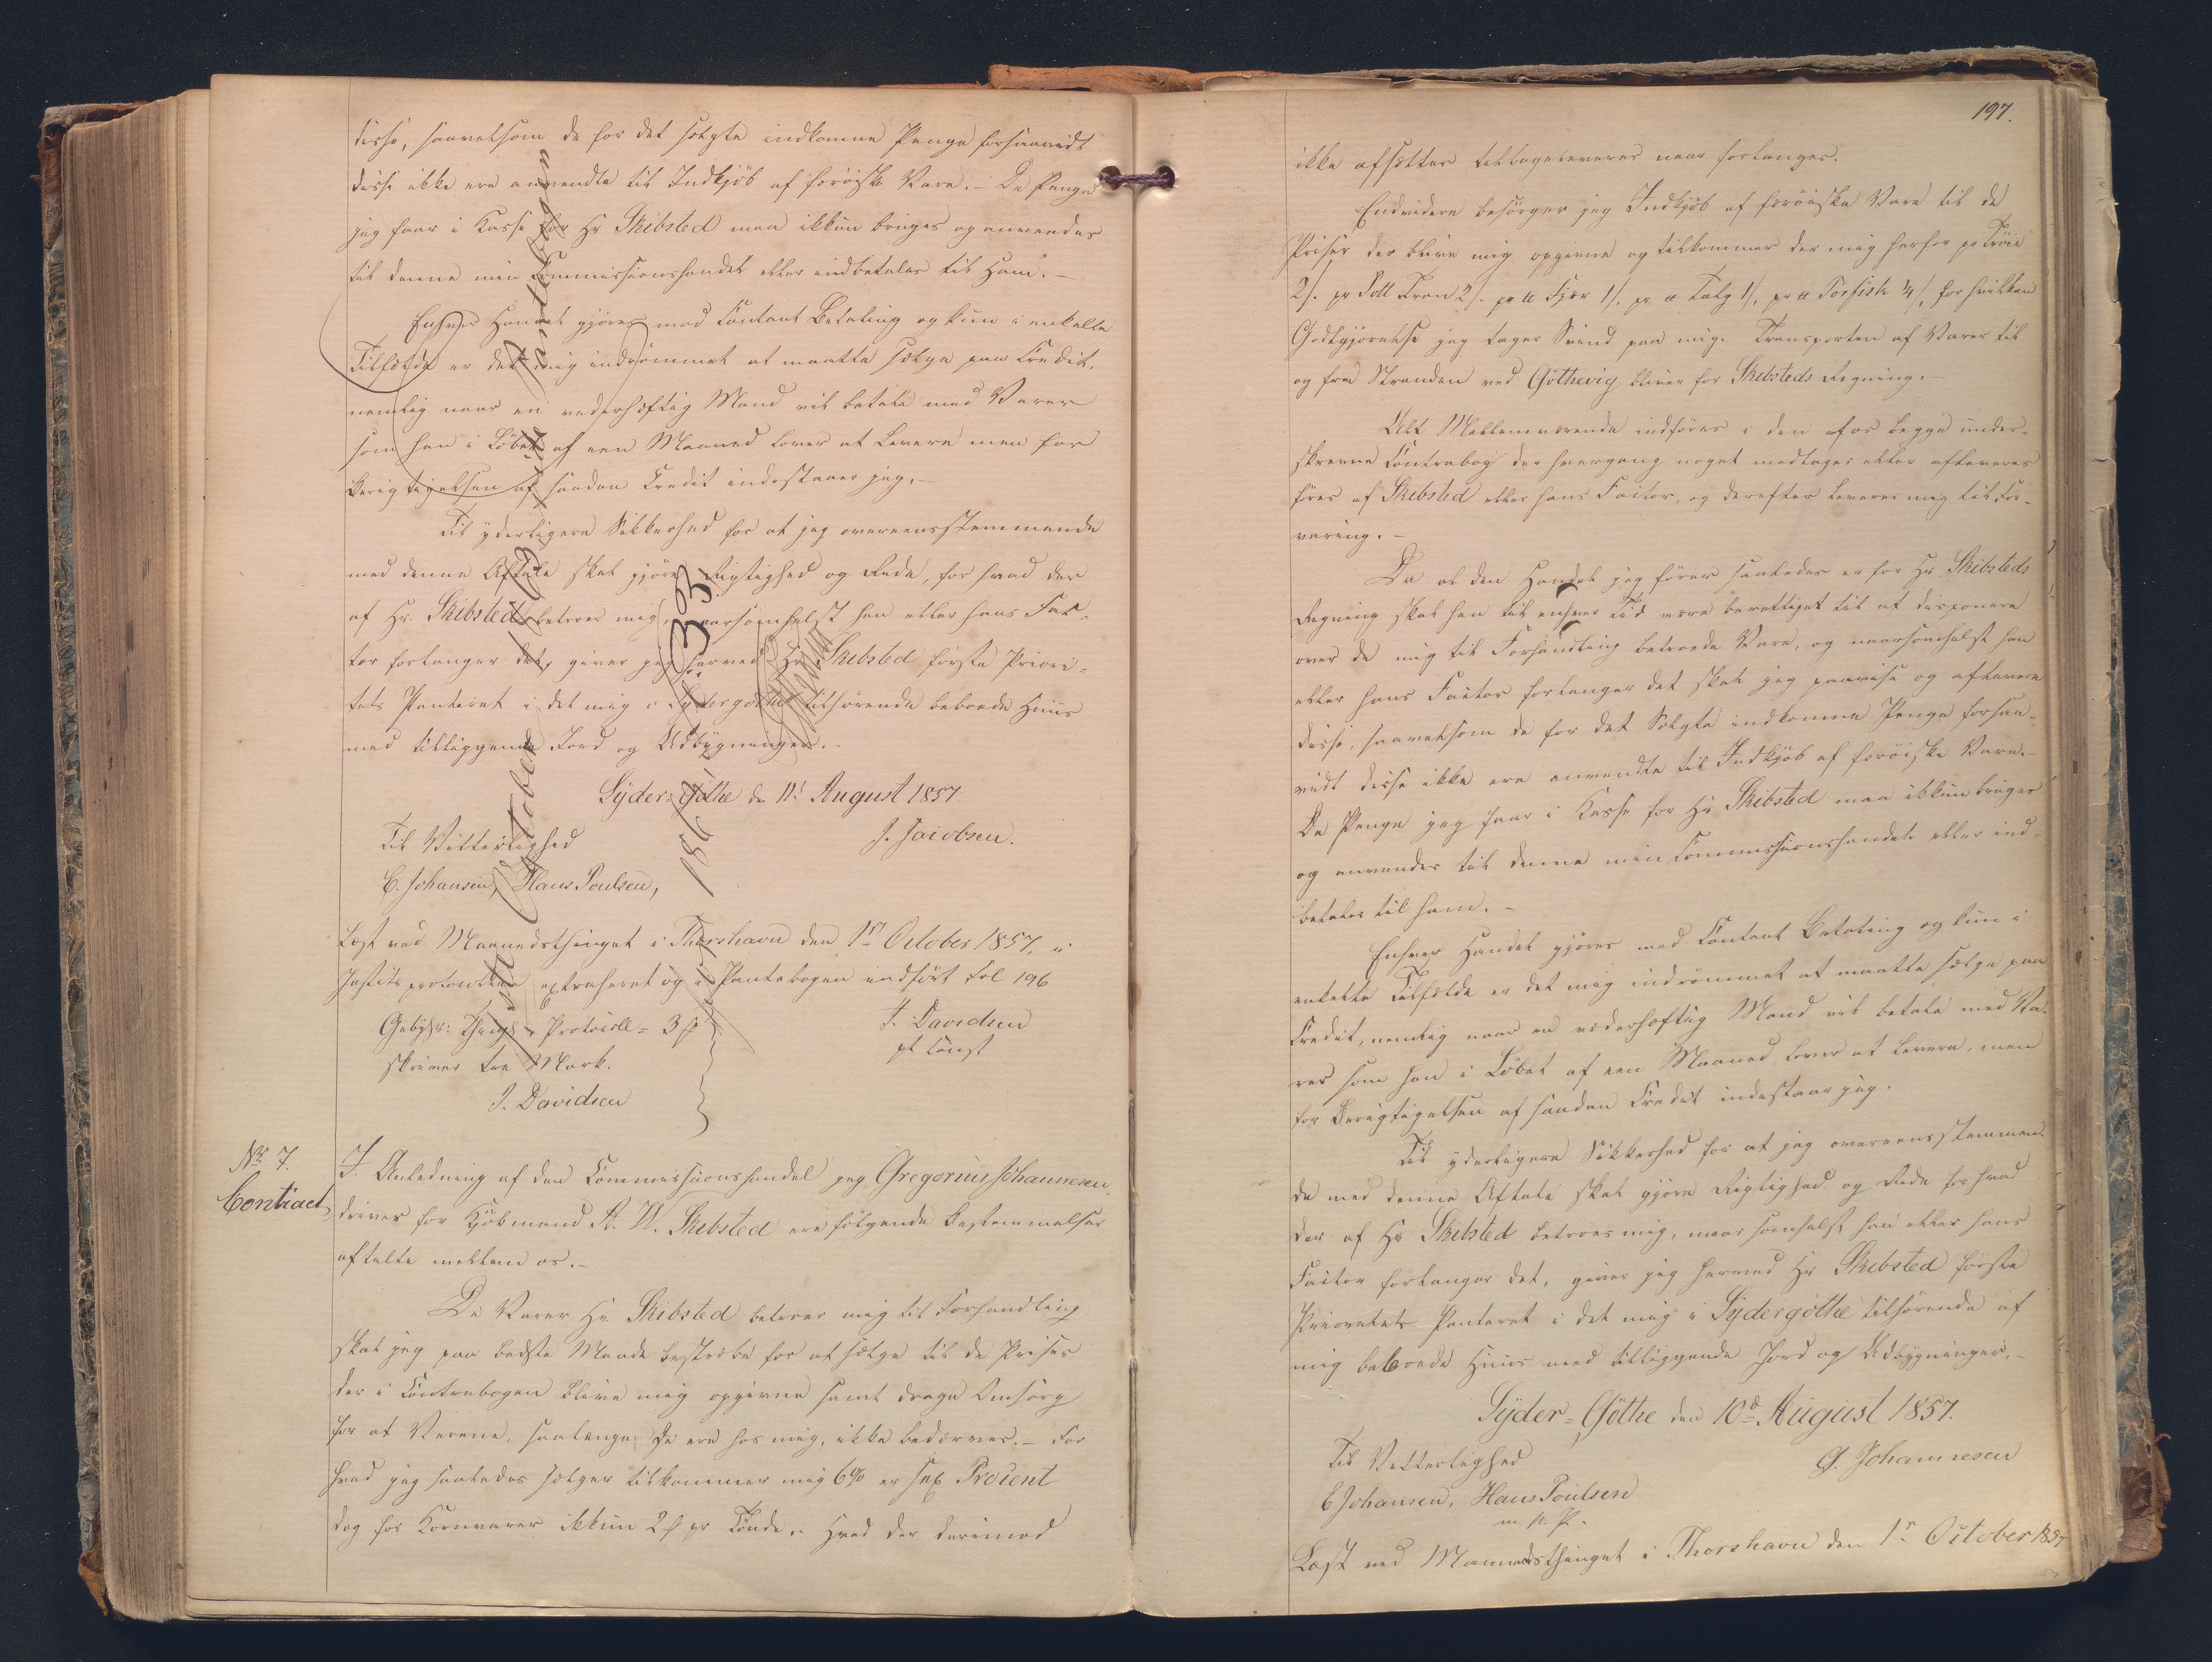 disse, saavelsom de for det solgte indkomne Penge forsaavidt
disse ikke ere anvendte til Indkjøb af færøiske Vare. – De Penge
jeg faar i Kasse for Hr Skibsted maa ikkun bruges og anvendes
til denne min Commissionshandel eller indbetales til Ham. –
Enhver Handel gjøres mod Contant Betaling og kun i enkelte
Tilfælde er det mig indrømmet at maatte sælge paa Credit,
nemlig naar en vederhæftig Mand vil betale med Varer
som han i Løbet af een Maaned lover at levere men for
Berigtigelsen af saadan Credit indestaaer jeg. –
Til yderligere Sikkerhed for at jeg overeensstemmende
med denne Aftale skal gjøre Rigtighed og Rede, for hvad der
af Hr. Skibsted betroes mig, naarsomhelst han eller hans Fac-
tor forlanger det, giver jeg herved Hr. Skibsted første Priori-
tets Panteret i det mig i Sydergøthe tilhørende beboede Huus
med tilliggende Jord og Udbygninger. –
Syder-Gøthe d. 11te August 1857.
Til Vitterlighed
J. Jacobsen.
C. Johansen, Hans Poulsen,
Læst ved Maanedsthinget i Thorshavn den 1n October 1857, i
Justitsprotocollen extraheret og i Pantebogen indført Fol 196
Gebyhr: Things & Protocoll = 3 #
J. Davidsen
skriver tre Mark.
pt const
J. Davidsen
No 7.
Contract,
I Anledning af den Commissionshandel jeg Gregorius Johannesen
driver for Kjøbmand A. W. Skibsted ere følgende Bestemmelser
aftalte mellem os. –
De Varer Hr. Skibsted betroer mig til Forhandling
skal jeg paa bedste Maade bestræbe for at sælge til de Priser
der i Contrabogen blive mig opgivne samt drage Omsorg
for at Varene, saalænge de ere hos mig, ikke bedærves. – For
hvad jeg saaledes sælger tilkommer mig 6% er sex Procent
dog for Kornvarer ikkun 2 # pr Tønde. – Hvad der derimod
197.
ikke afsættes tilbageleveres naar forlanges.
Endvidere besørger jeg Indkjøb af færøiske Vare til de
Priser der blive mig opgivne og tilkommer der mig herfor pr Trøie
2/. pr Pott Tran 2/. pr tt Fjær 1/, pr. tt Talg 1/, pr tt Törfisk ¼/, for hvilken
Godtgjørelse jeg tager Svind paa mig. Transporten af Varer til
og fra Stranden ved Gøthevig bliver for Skibsteds Regning. –
Alt Mellemværende indføres i den af os begge under-
skrevne Contrabog der hvergang noget modtages eller afleveres
føres af Skibsted eller hans Factor, og derefter leveres mig til For-
varing. –
Da al den Handel jeg fører saaledes er for Hr. Skibsteds
Regning skal han til enhver Tid være berettiget til at disponere
over de mig til Forhandling betroede Vare, og naarsomhelst han
eller hans Factor forlanger det skal jeg paavise og aflevere
disse, saavelsom de for det Solgte indkomne Penge forsaa-
vidt disse ikke ere anvendte til Indkjøb af færøiske Vare. –
De Penge jeg faar i Kasse for Hr Skibsted maa ikkun bruges
og anvendes til denne min Commissionshandel eller ind-
betales til ham. –
Enhver Handel gjøres mod Contant Betaling og kun i
enkelte Tilfælde er det mig indrømmet at maatte sælge paa
Credit, nemlig naar en vederhæftig Mand vil betale med Va-
rer som han i Løbet af een Maaned lover at levere, men
for Berigtigelsen af saadan Credit indestaar jeg.
Til yderligere Sikkerhed for at jeg overeensstemmen-
de med denne Aftale skal gjøre Rigtighed og Rede for hvad
der af Hr Skibsted betroes mig, naar somhelst han eller hans
Factor forlanger det, giver jeg herved Hr Skibsted første
Prioritets Panteret i det mig i Sydergøthe tilhørende af
mig beboede Huus med tilliggende Jord og Udbygninger. –
Syder-Gøthe den 10de August 1857.
Til Vitterlighed
G. Johannesen
C Johansen, Hans Poulsen
m. p. P.
Læst ved Maanedsthinget i Thorshavn den 1n October 1857